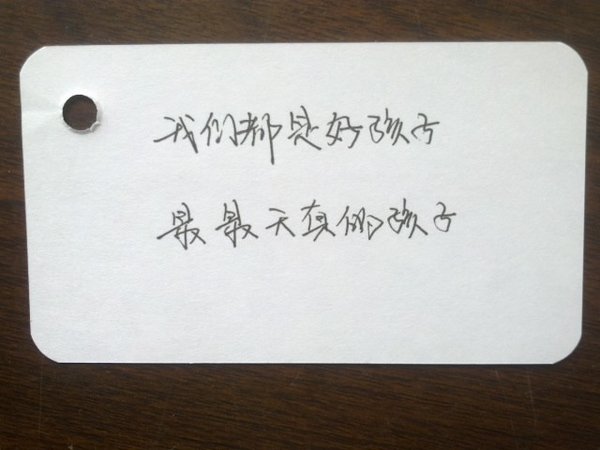 我们都是好孩子
最最天真的孩子